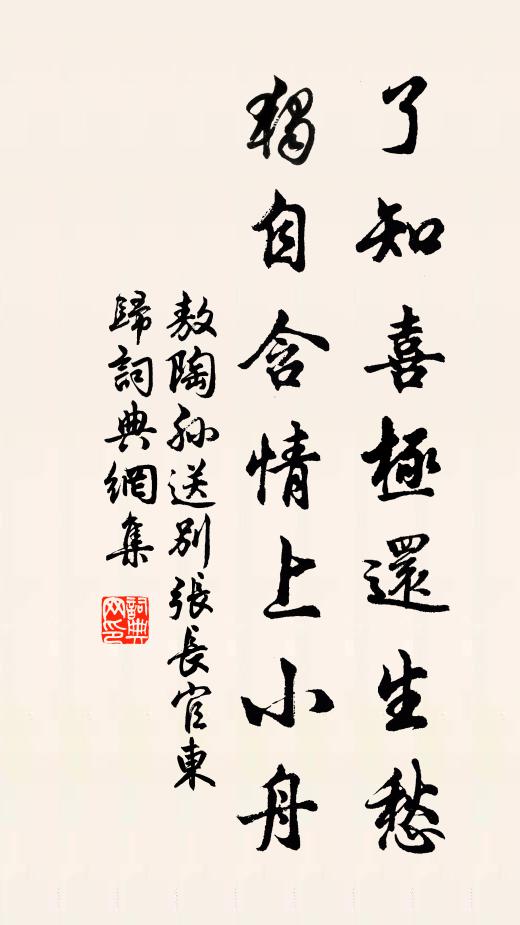 了知喜極還生愁
獨自含情上小舟
敖陶孫送別張長官東
歸詞典網集
詞典
网印